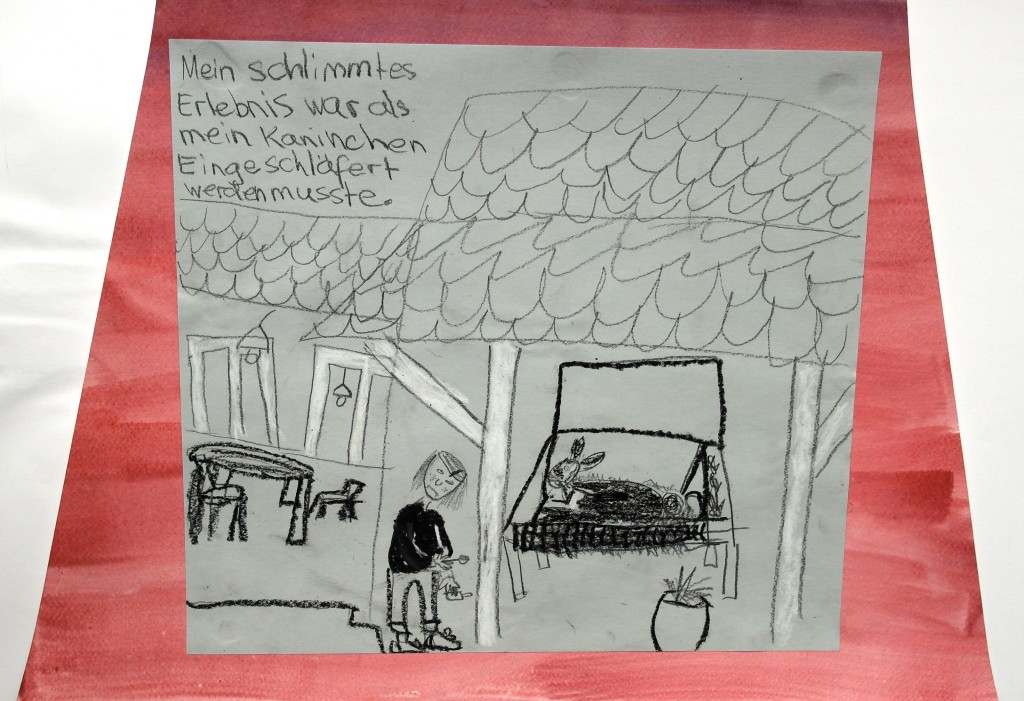 Mein schlimmtes
Erlebnis war als
mein Kaninchen
Eingeschläfert
werden musste.